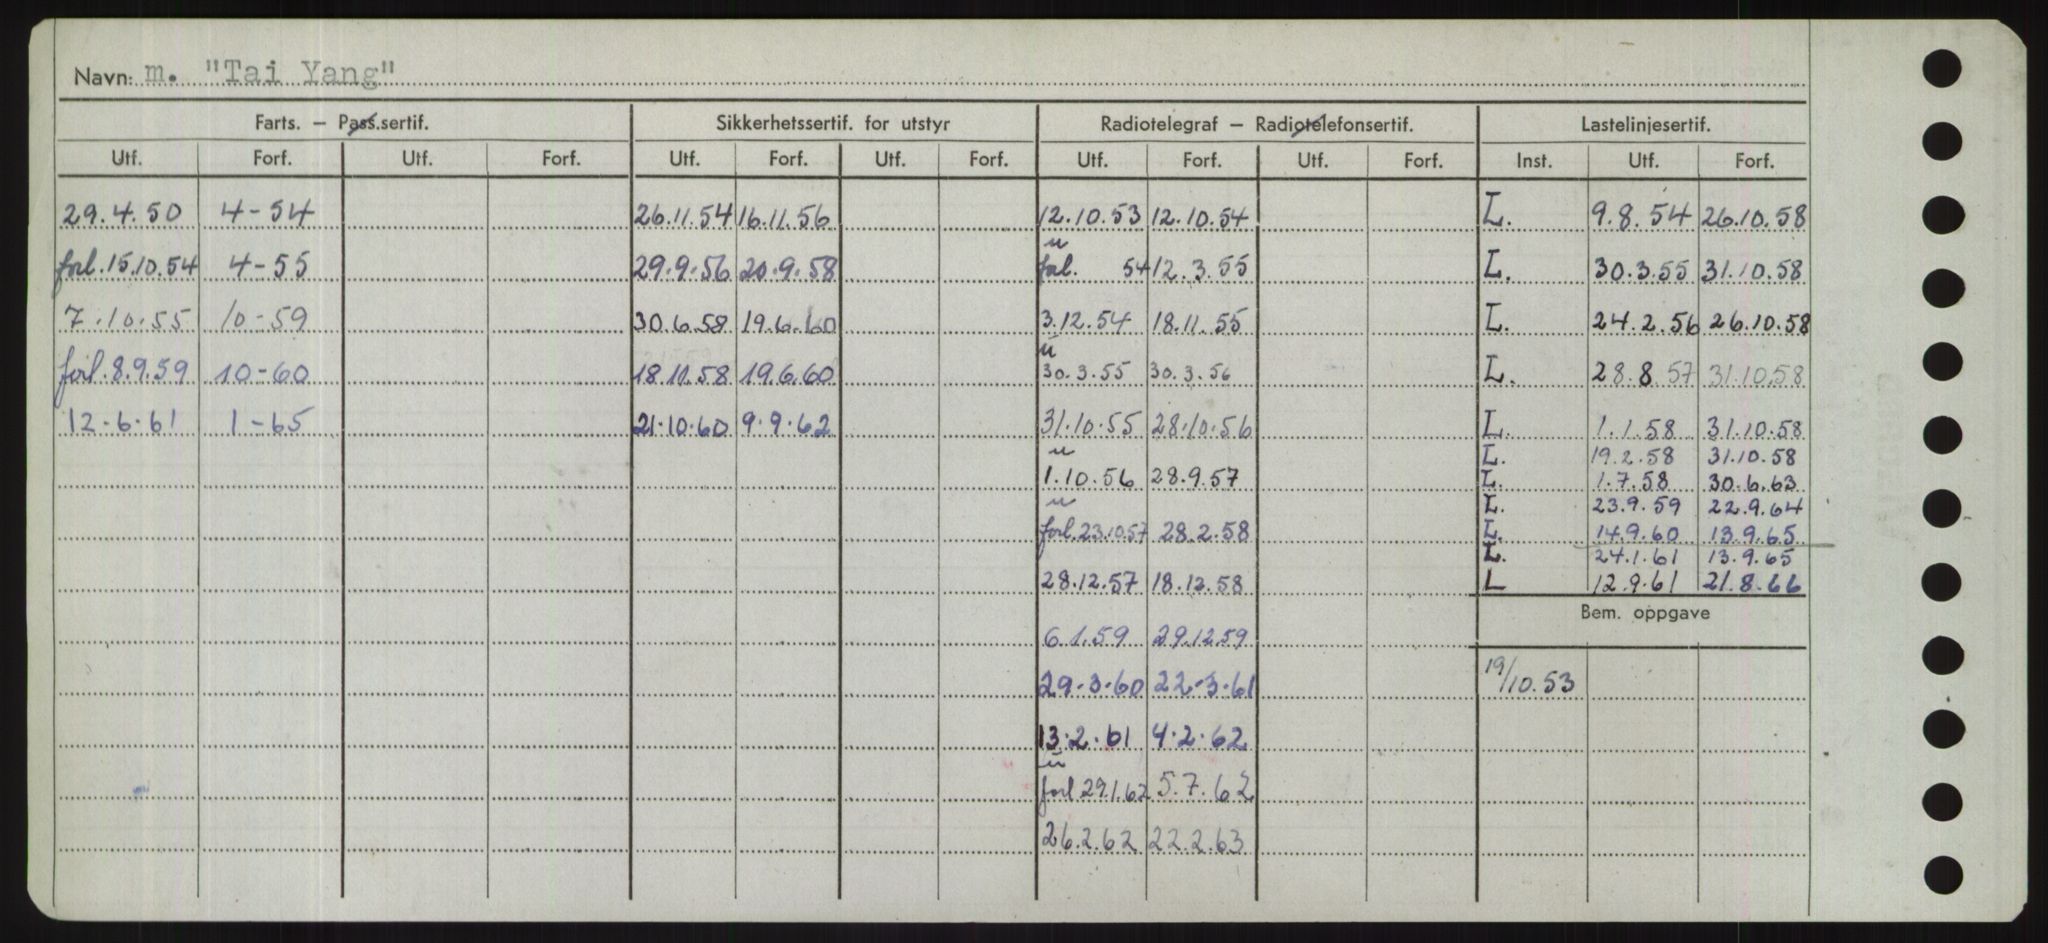 Navn: m. "Tai Yang"
Farts. – Pass.sertif. Sikkerhetssertif. for utstyr Radiotelegraf – Radiotelefonsertif. Lastelinjesertif.
Utf. Forf. Utf. Forf. Utf. Forf. Utf. Forf. Utf. Forf. Utf. Forf. Inst. Utf. Forf.
29.4.50 4-54 26.11.54 16.11.56 12.10.53 12.10.54 L. 9.8.54 26.10.58
u
forl. 15.10.54 4-55 29.9.56 20.9.58 forl. 54 12.3.55 L. 30.3.55 31.10.58
7.10.55 10-59 30.6.58 19.6.60 3.12.54 18.11.55 L. 24.2.56 26.10.58
u
forl. 8.9.59 10-60 18.11.58 19.6.60 30.3.55 30.3.56 L. 28.8.57 31.10.58
12-6-61 1-65 21.10.60 9.9.62 31.10.55 28.10.56 L. 1.1.58 31.10.58
u L. 19.2.58 31.10.58
1.10.56 28.9.57 L. 1.7.58 30.6.63
u L. 23.9.59 22.9.64
forl. 23.10.57 28.2.58 L. 14.9.60 13.9.65
L. 24.1.61 13.9.65
28.12.57 18.12.58 L 12.9.61 21.8.66
Bem. oppgave
6.1.59 29.12.59
29.3.60 22.3.61 19/10.53
13.2.61 4.2.62
u
forl 29.1.62 5.7.62
26.2.62 22.2.63